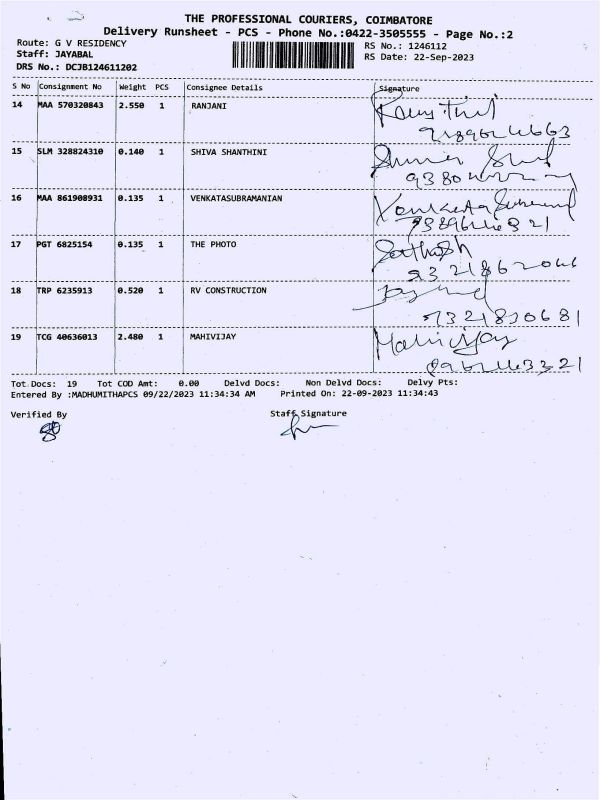 THE PROFESSIONAL COURIERS, COIMBATORE
Delivery Runsheet - PCS - Phone No.:0422-3505555 - Page No.:2
Route: G V RESIDENCY
Staff: JAYABAL
DRS No.: DCJB124611202
RS No.: 1246112
RS Date: 22-Sep-2023
S No Consignment No Weight PCS Consignee Details Signature
14 MAA 570320843 2.550 1 RANJANI
15 SLM 328824310 0.140 1 SHIVA SHANTHINI
16 MAA 861908931 0.135 1 VENKATASUBRAMANIAN Venkata
17 PGT 6825154 0.135 1 THE PHOTO Sathish
18 TRP 6235913 0.520 1 RV CONSTRUCTION
9321830681
19 TCG 40636013 2.480 1 MAHIVIJAY Mahivijay
Tot Docs: 19 Tot COD Amt: 0.00 Delvd Docs: Non Delvd Docs: Delvy Pts:
Entered By :MADHUMITHAPCS 09/22/2023 11:34:34 AM Printed On: 22-09-2023 11:34:43
Verified By Staff Signature